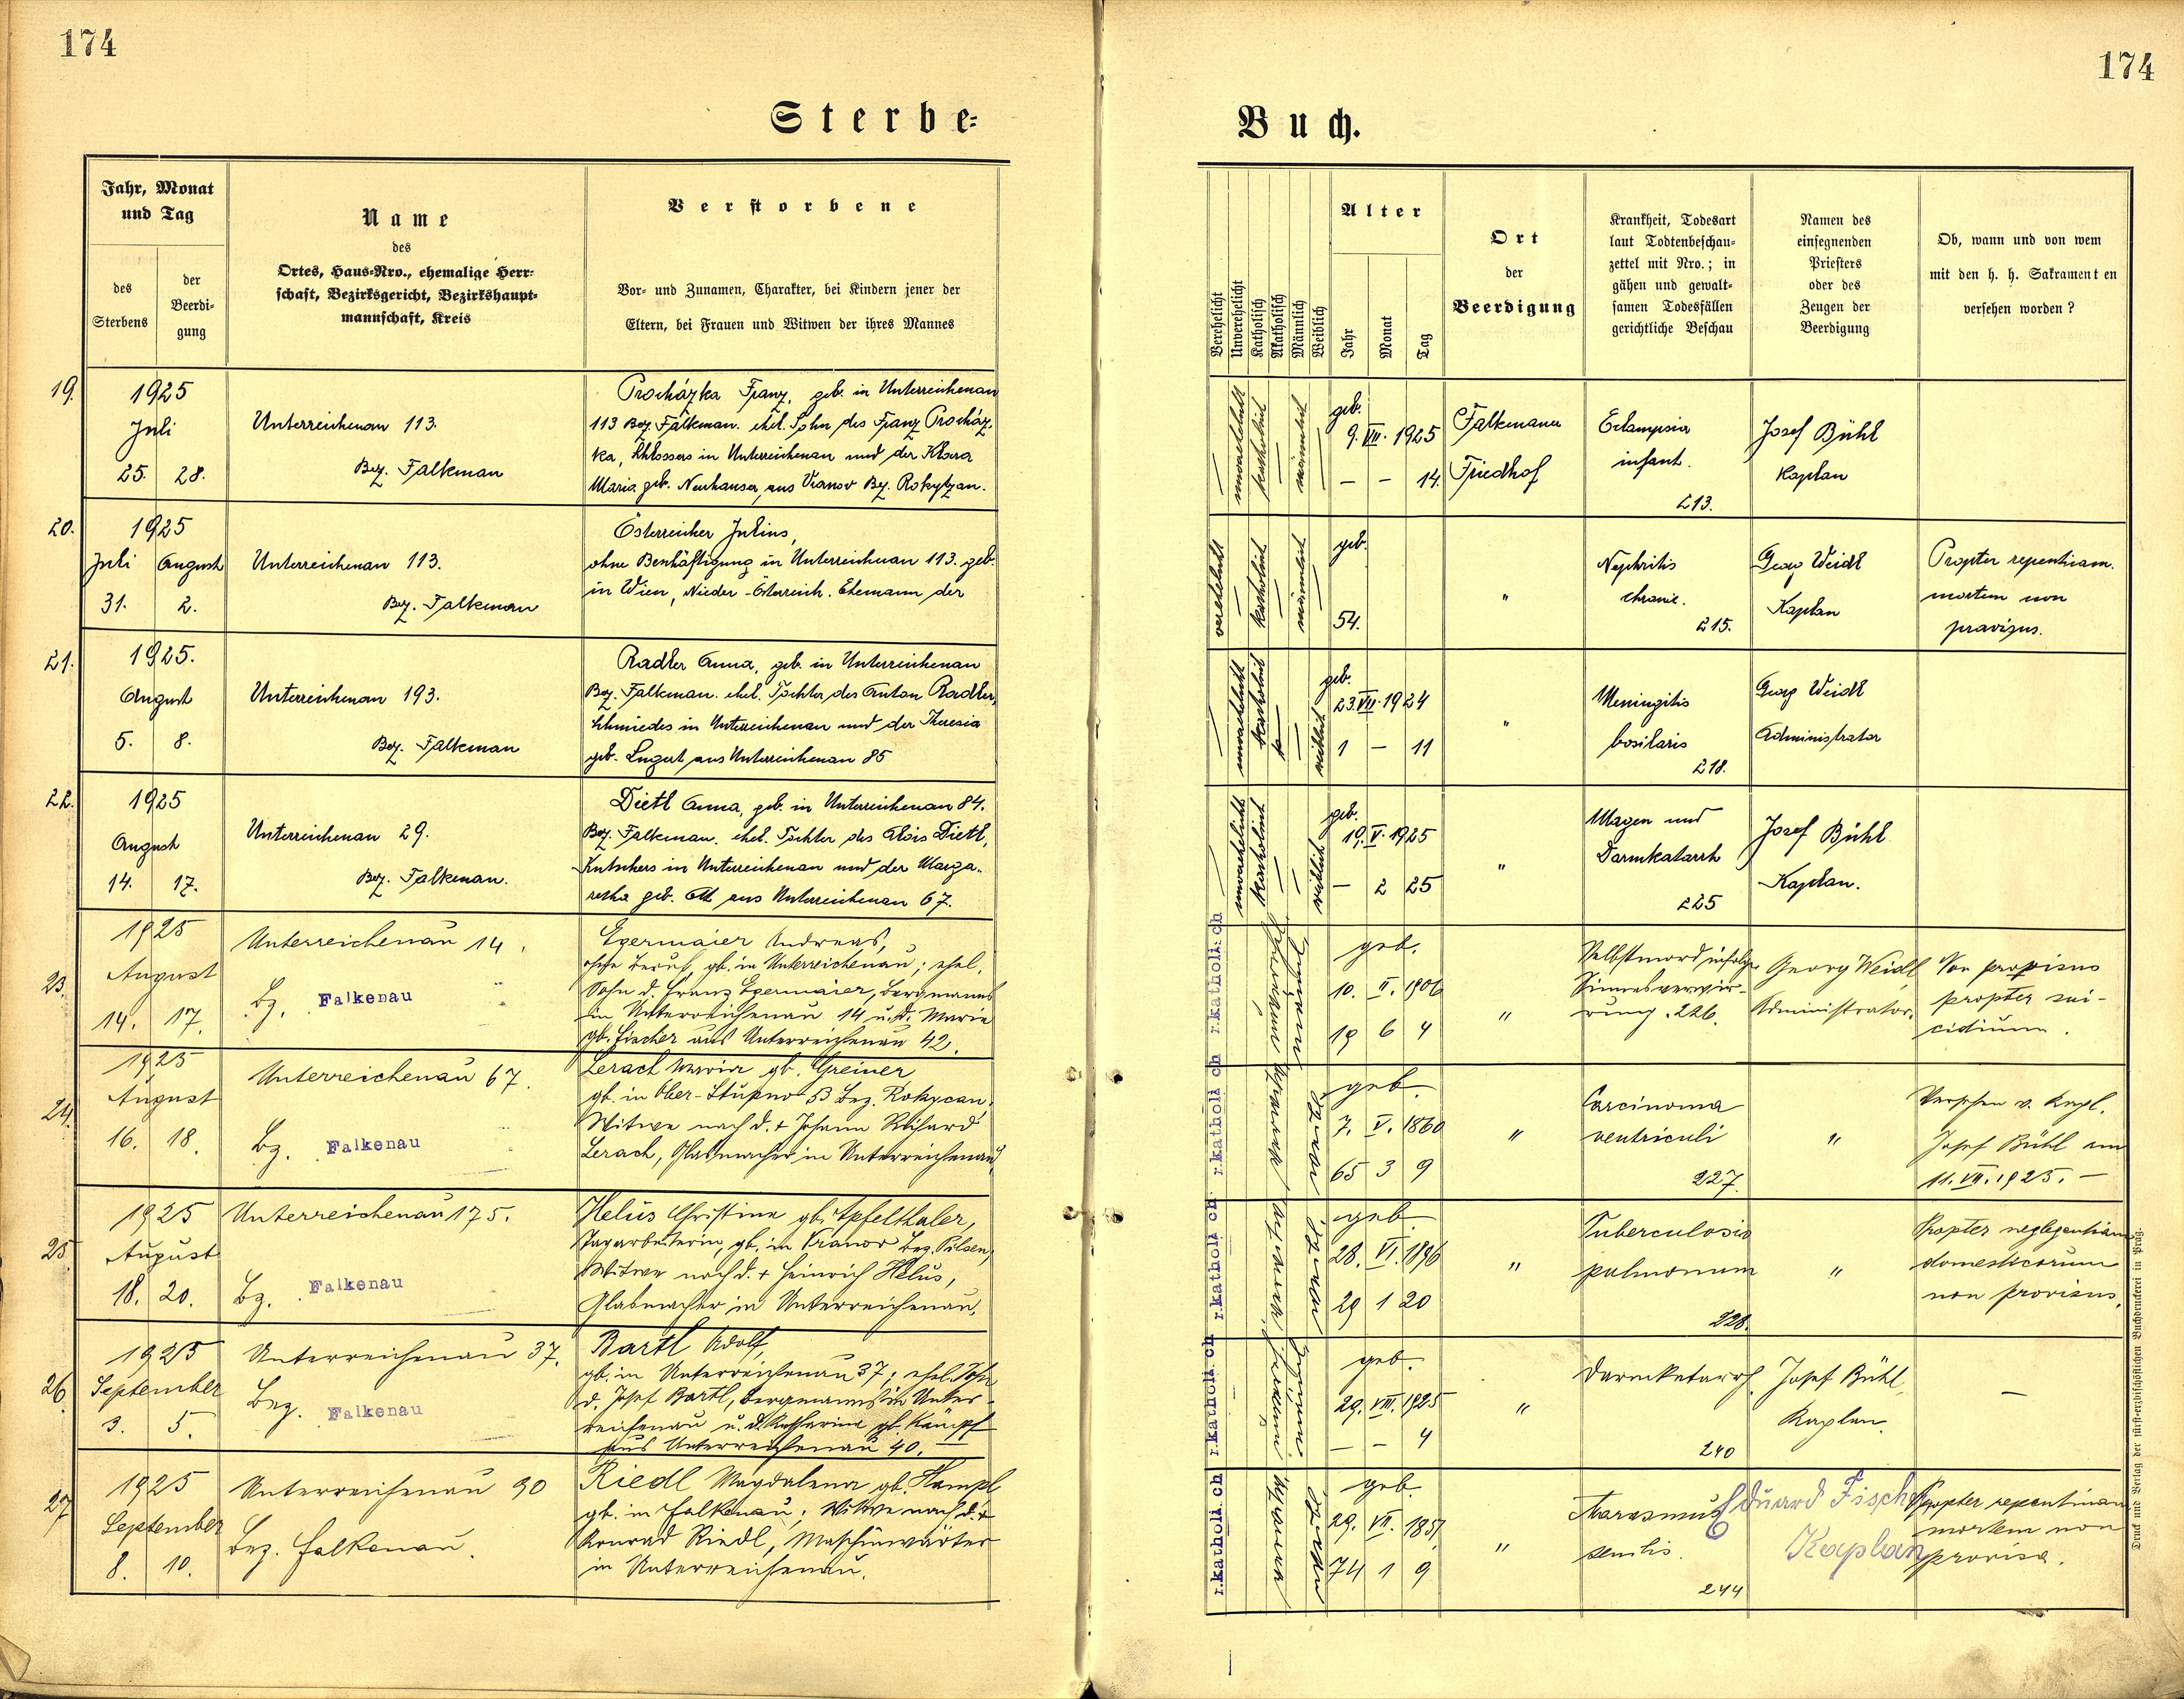 174
174
Sterbe-
Buch.
Jahr, Monat
und Tag
des
Sterbens
der
Beerdi-
gung
Name
des
Ortes, Haus-Nro., ehemalige Herr-
schaft, Bezirksgericht, Bezirkshaupt-
mannschaft, Kreis
Verstorbene
Vor- und Zunamen, Charakter, bei Kindern jener der
Eltern, bei Frauen und Witwen der ihres Mannes
Verehelicht
Unverehelicht
Katholisch
Akatholisch
Männlich
Weiblich
Alter
Jahr
Monat
Tag
Ort
der
Beerdigung
Krankheit, Todesart
laut Todtenbeschau-
zettel mit Nro.; in
gähen und gewalt-
samen Todesfällen
gerichtliche Beschau
Namen des
einsegnenden
Priesters
oder des
Zeugen der
Beerdigung
Ob, wann und von wem
mit den h. h. Sakramenten
versehen worden?
19.
1925
Juli
25. 28.
Unterreichenau 113.
Bez. Falkenau
Procházka Franz, geb. in Unterreichenau
113 Bez. Falkenau. ehel. Sohn des Franz Procház-
ka, Schlossers in Unterreichenau und der Klara
Maria geb. Neuhauser, aus Vranov Bz. Rokytzan.
unverehelicht
katholisch
männlich
geb.
9. VII. 1925
– – 14.
Falkenauer
Friedhof
Eclampsia
infant.
213.
Josef Bühl
Kaplan
20.
1925
Juli August
31. 2.
Unterreichenau 113.
Bez. Falkenau
Österreicher Julius,
ohne Beschäftigung in Unterreichenau 113. geb.
in Wien, Nieder-Österreich. Ehemann der
verehelicht
katholisch
männlich
geb.
54.
"
Nephritis
chronic.
215.
Georg Weidl
Kaplan
Propter repentinam
mortem non
provisus.
21.
1925.
August
5. 8.
Unterreichenau 193.
Bez. Falkenau
Radler Anna, geb. in Unterreichenau
Bez. Falkenau. ehel. Tochter des Anton Radler,
Schmiedes in Unterreichenau und der Theresia
geb. Lugert aus Unterreichenau 85
unverehelicht
katholisch
weiblich
geb.
23. VII. 1924
1 – 11
"
Meningitis
basilaris
218.
Georg Weidl
Administrator
22.
1925
August
14. 17.
Unterreichenau 29.
Bez. Falkenau.
Dietl Anna, geb. in Unterreichenau 84.
Bez. Falkenau. ehel. Tochter des Alois Dietl,
Kutschers in Unterreichenau und der Marga-
retha geb. Ott aus Unterreichenau 67.
unverehelicht
katholisch
weiblich
geb.
19. V. 1925
– 2 25
"
Magen und
Darmkatarrh
225
Josef Bühl
Kaplan.
23.
1925
August
14. 17.
Unterreichenau 14.
Bz. Falkenau
Egermaier Andreas,
ohne Beruf, gb. in Unterreichenau; ehel.
Sohn d. Franz Egermaier, Bergmanns
in Unterreichenau 14 u. d. Marie
gb. Fischer aus Unterreichenau 42.
r.katholi. ch
geb.
10. II. 1906
19 6 4
"
Selbstmord infolge
Sinnesverwir-
rung. 226.
Georg Weidl
Administrator.
Non provisus
propter sui-
cidium.
24.
1925
August
16. 18.
Unterreichenau 67.
Bz. Falkenau
Lerach Maria gb. Greiner
gb. in Ober-Stupno 53 Bez. Rokycan.
Witwe nach d. + Johann Richard
Lerach, Glasmacher in Unterreichenau
r.katholi ch
geb.
7. V. 1860
65 3 9
"
Carcinoma
ventriculi
227.
"
Versehen v. Kapl.
Josef Bühl am
11. VII. 1925. –
25.
1925
August
18. 20.
Unterreichenau 175.
Bz. Falkenau
Helus Christine gb. Apfelthaler,
Tagarbeiterin, gb. in Vranov Bez. Pilsen,
Witwe nach d. + Heinrich Helus,
Glasmacher in Unterreichenau.
r.katholi ch
geb.
28. VI. 1896
29 1 20
"
Tuberculosis
pulmonum
228.
"
Propter neglegentiam
domesticorum
non provisus.
26.
1925
September
3. 5.
Unterreichenau 37.
Bez. Falkenau
Bartl Adolf,
gb. in Unterreichenau 37; ehel. Sohn
d. Josef Bartl, Bergmanns in Unter-
reichenau u. d. Katharina gb. Kampf
aus Unterreichenau 40. –
r.katholi. ch
geb.
29. VIII. 1925
– – 4
"
Darmkatarrh
240
Josef Bühl,
Kaplan.
–
27.
1925
September
8. 10.
Unterreichenau 90
Bez. Falkenau.
Riedl Magdalena gb. Hampl
gb. in Falkenau; Witwe nach d. +
Konrad Riedl, Maschinwärter
in Unterreichenau.
r.katholi. ch
geb.
29. VII. 1851
74 1 9
"
Marasmus
senilis.
244
Eduard Fischer
Kaplan
Propter repentinam
mortem non
provisa.
Druck und Verlag der fürst-erzbischöflichen Buchdruckerei in Prag.